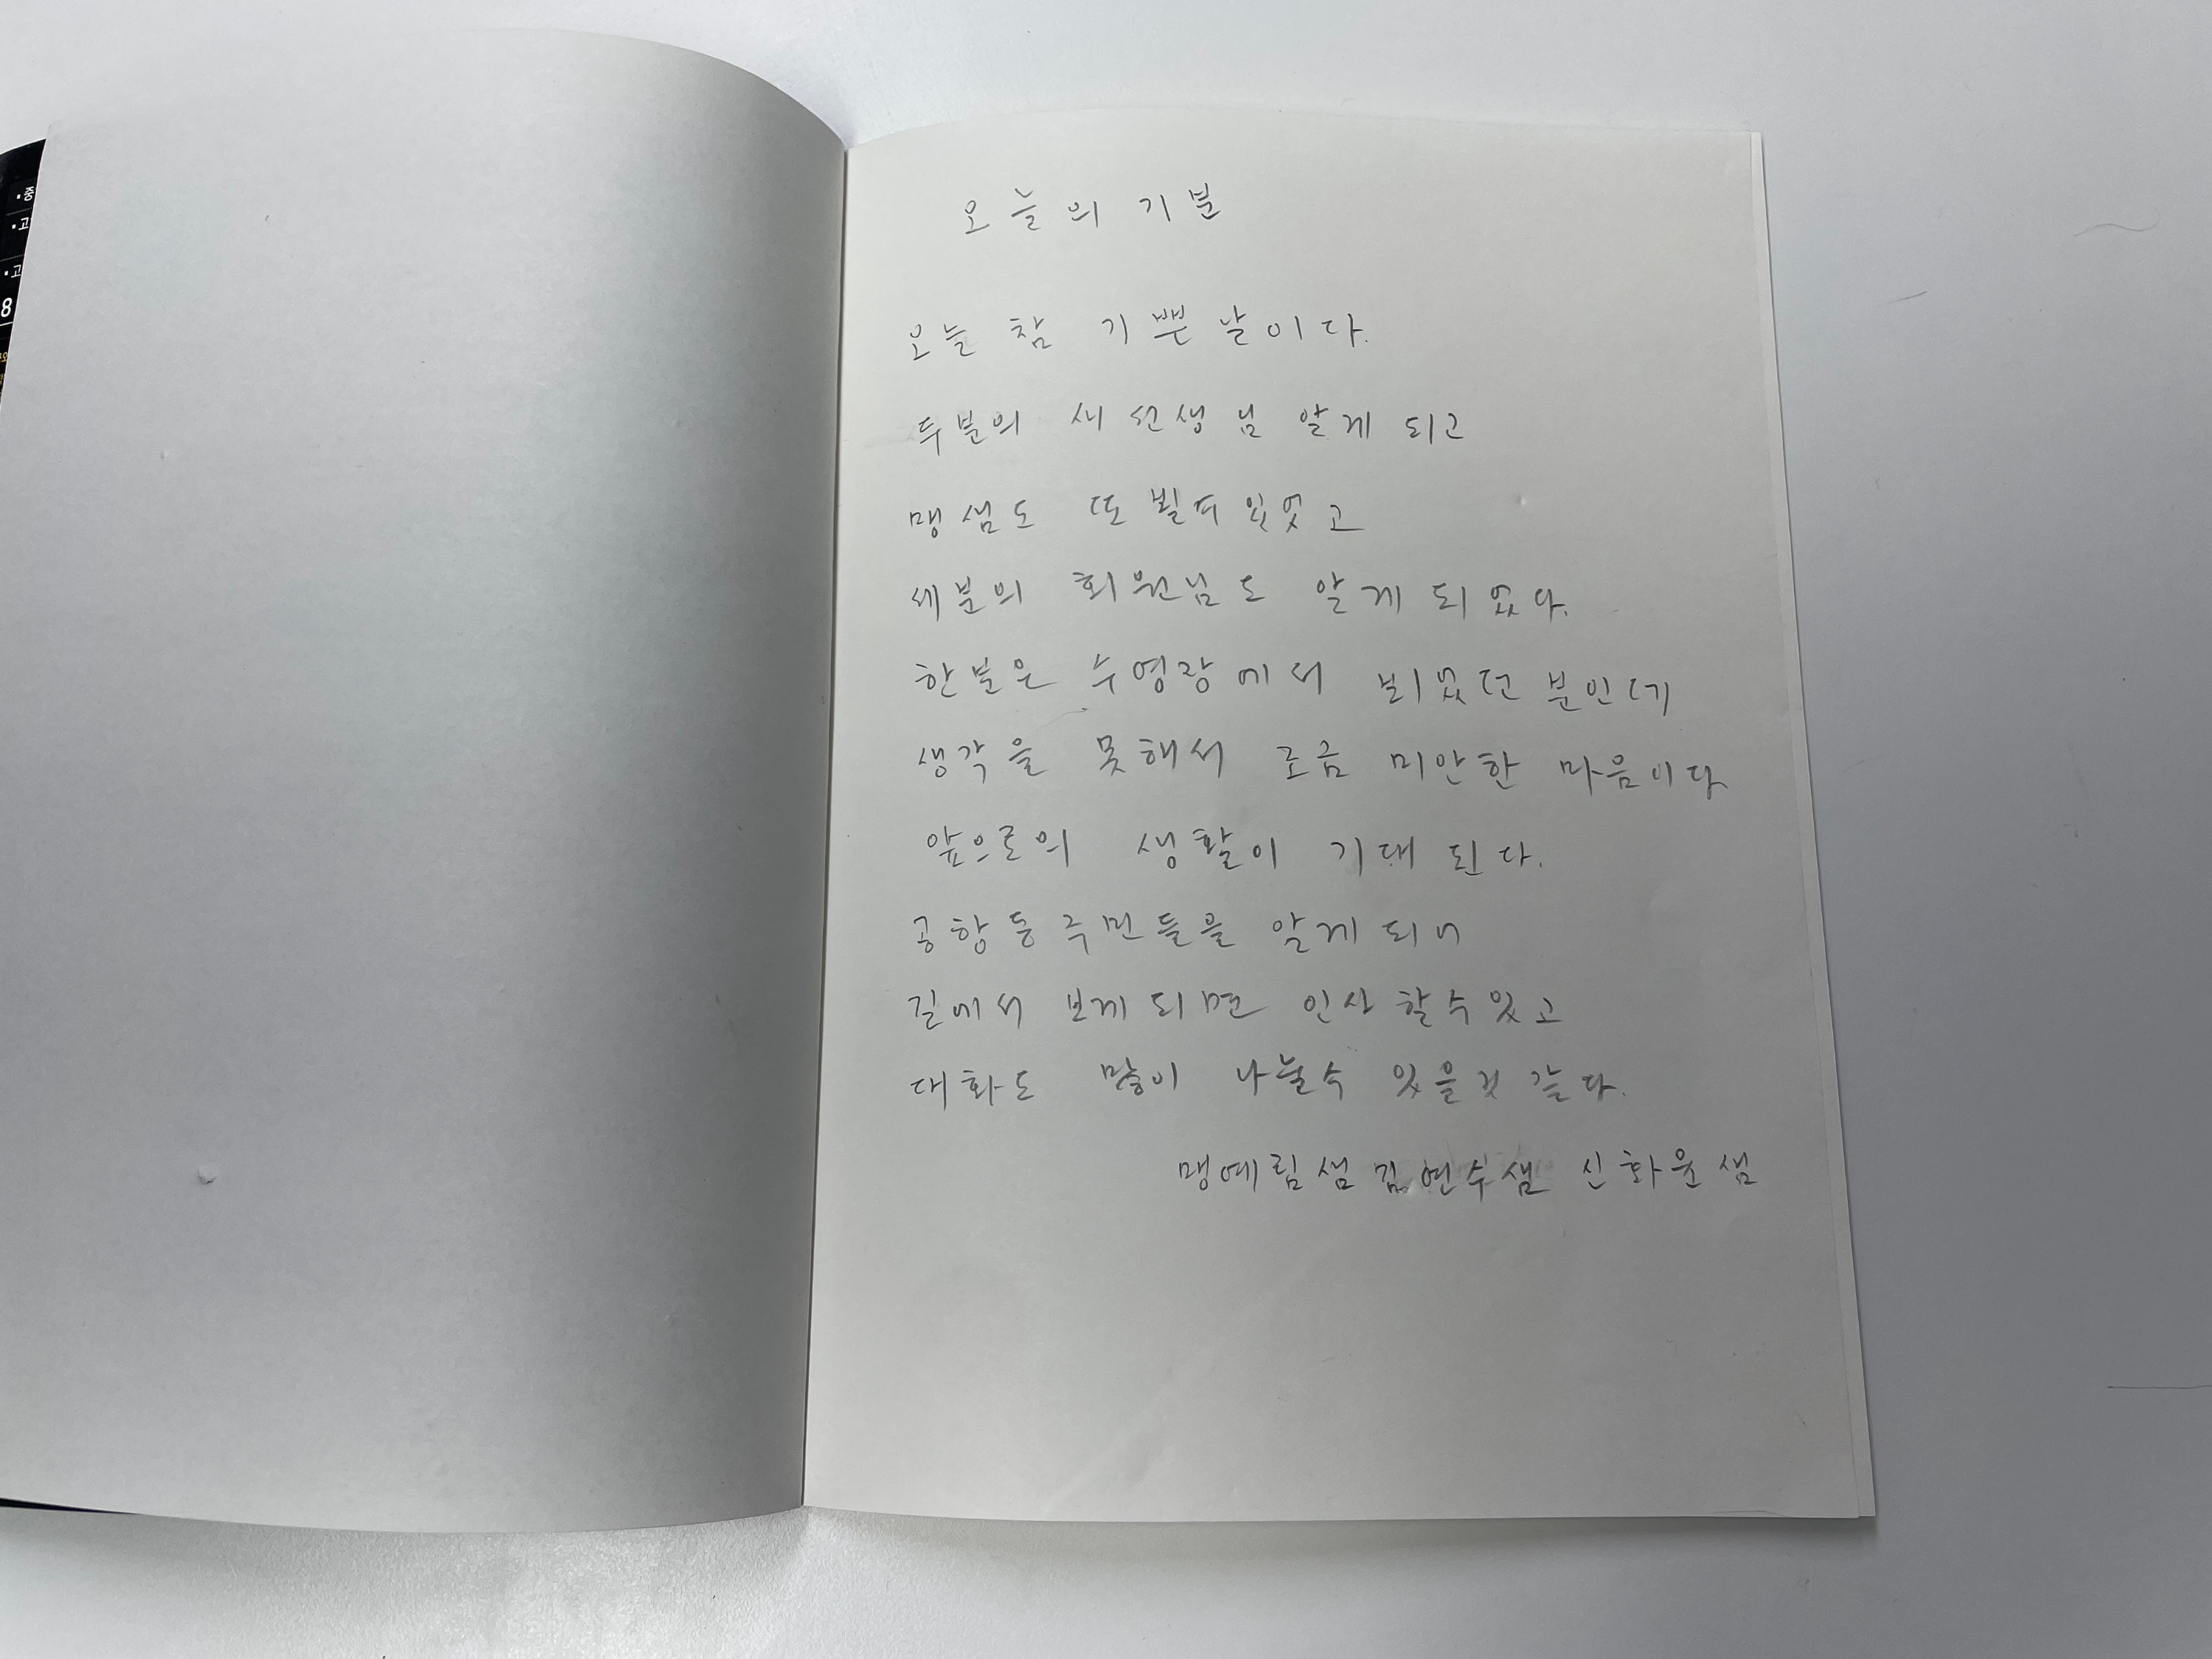 중
고
고
8
오늘의 기분
오늘 참 기쁜 날이다.
두분의 새 선생님 알게 되고
맹샘도 또 뵐수 있었고
세분의 회원님도 알게 되었다.
한분은 수영장에서 뵈었던 분인데
생각을 못해서 조금 미안한 마음이다
앞으로의 생활이 기대 된다.
공항동 주민들을 알게 되니
길에서 보게 되면 인사 할수 있고
대화도 많이 나눌수 있을것 같다.
맹예림샘 김연수샘 신화윤샘